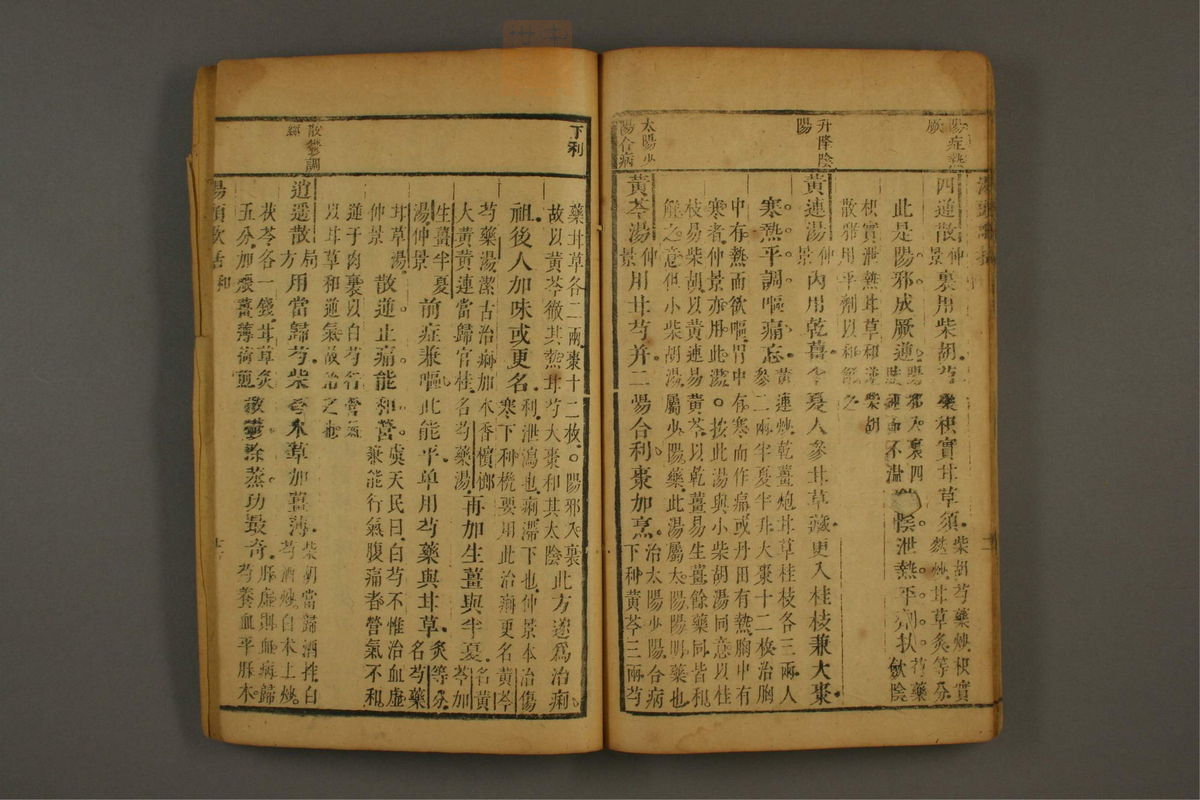 陽症熱
厥
四逆散仲景裏用柴胡。芍藥枳實甘草須。柴胡芍藥炒枳實
麩炒甘草炙等分
此是陽邪成厥逆。陽邪入裏四
肢逆而不溫
斂陰泄熱平劑扶。芍藥
斂陰
枳實泄熱甘草和逆柴胡
散邪用平劑以和解之
升降陰
陽
黃連湯仲景內用乾薑。半夏人參甘草藏。更入桂枝兼大棗。
寒熱平調嘔痛忘。黃連炒乾薑炮甘草桂枝各三兩人
參二兩半夏半升大棗十二枚治胸
中有熱而欲嘔胃中有寒而作痛或丹田有熱胸中有
寒者仲景亦用此湯。按此湯與小柴胡湯同意以桂
枝易柴胡以黃連易黃芩以乾薑易生薑餘藥同皆和
解之意但小柴胡湯屬少陽藥此湯屬太陽陽明藥也
太陽少
陽合病
黃芩湯仲景用甘芍并。二陽合利棗加烹。治太陽少陽合病
下利黃芩三兩芍
下利
藥甘草各二兩棗十二枚。陽邪入裏
故以黃芩徹其熱甘芍大棗和其太陰
此方遂為治痢
祖。後人加味或更名。利泄瀉也痢滯下也仲景本治傷
寒下利機要用此治痢更名黃芩
芍藥湯潔古治痢加木香檳榔
大黃黃連當歸官桂名芍藥湯
再加生薑與半夏。名黃
芩加
生薑半夏
湯仲景
前症兼嘔此能平。單用芍藥與甘草。炙等分
名芍藥
甘草湯
仲景
散逆止痛能和營。虞天民曰白芍不惟治血虛
兼能行氣腹痛者營氣不和
逆于肉裏以白芍行營氣
以甘草和逆氣故治之也
散鬱調
經
逍遙散局方用當歸芍。柴苓朮草加薑薄。柴胡當歸酒拌白
芍酒炒白朮土炒
茯苓各一錢甘草炙
五分加煨薑薄荷煎
散鬱除蒸功最奇。肝虛則血病歸
芍養血平肝木
湯頭歌括 和